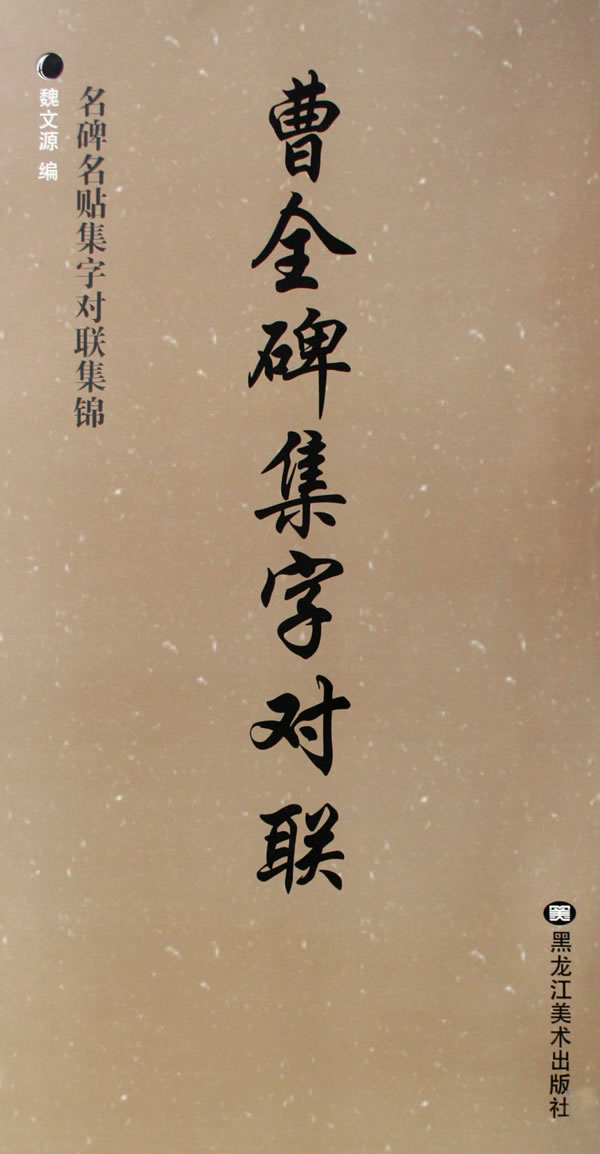 曹全碑集字对联
名碑名贴集字对联集锦
魏文源 编
黑龙江美术出版社